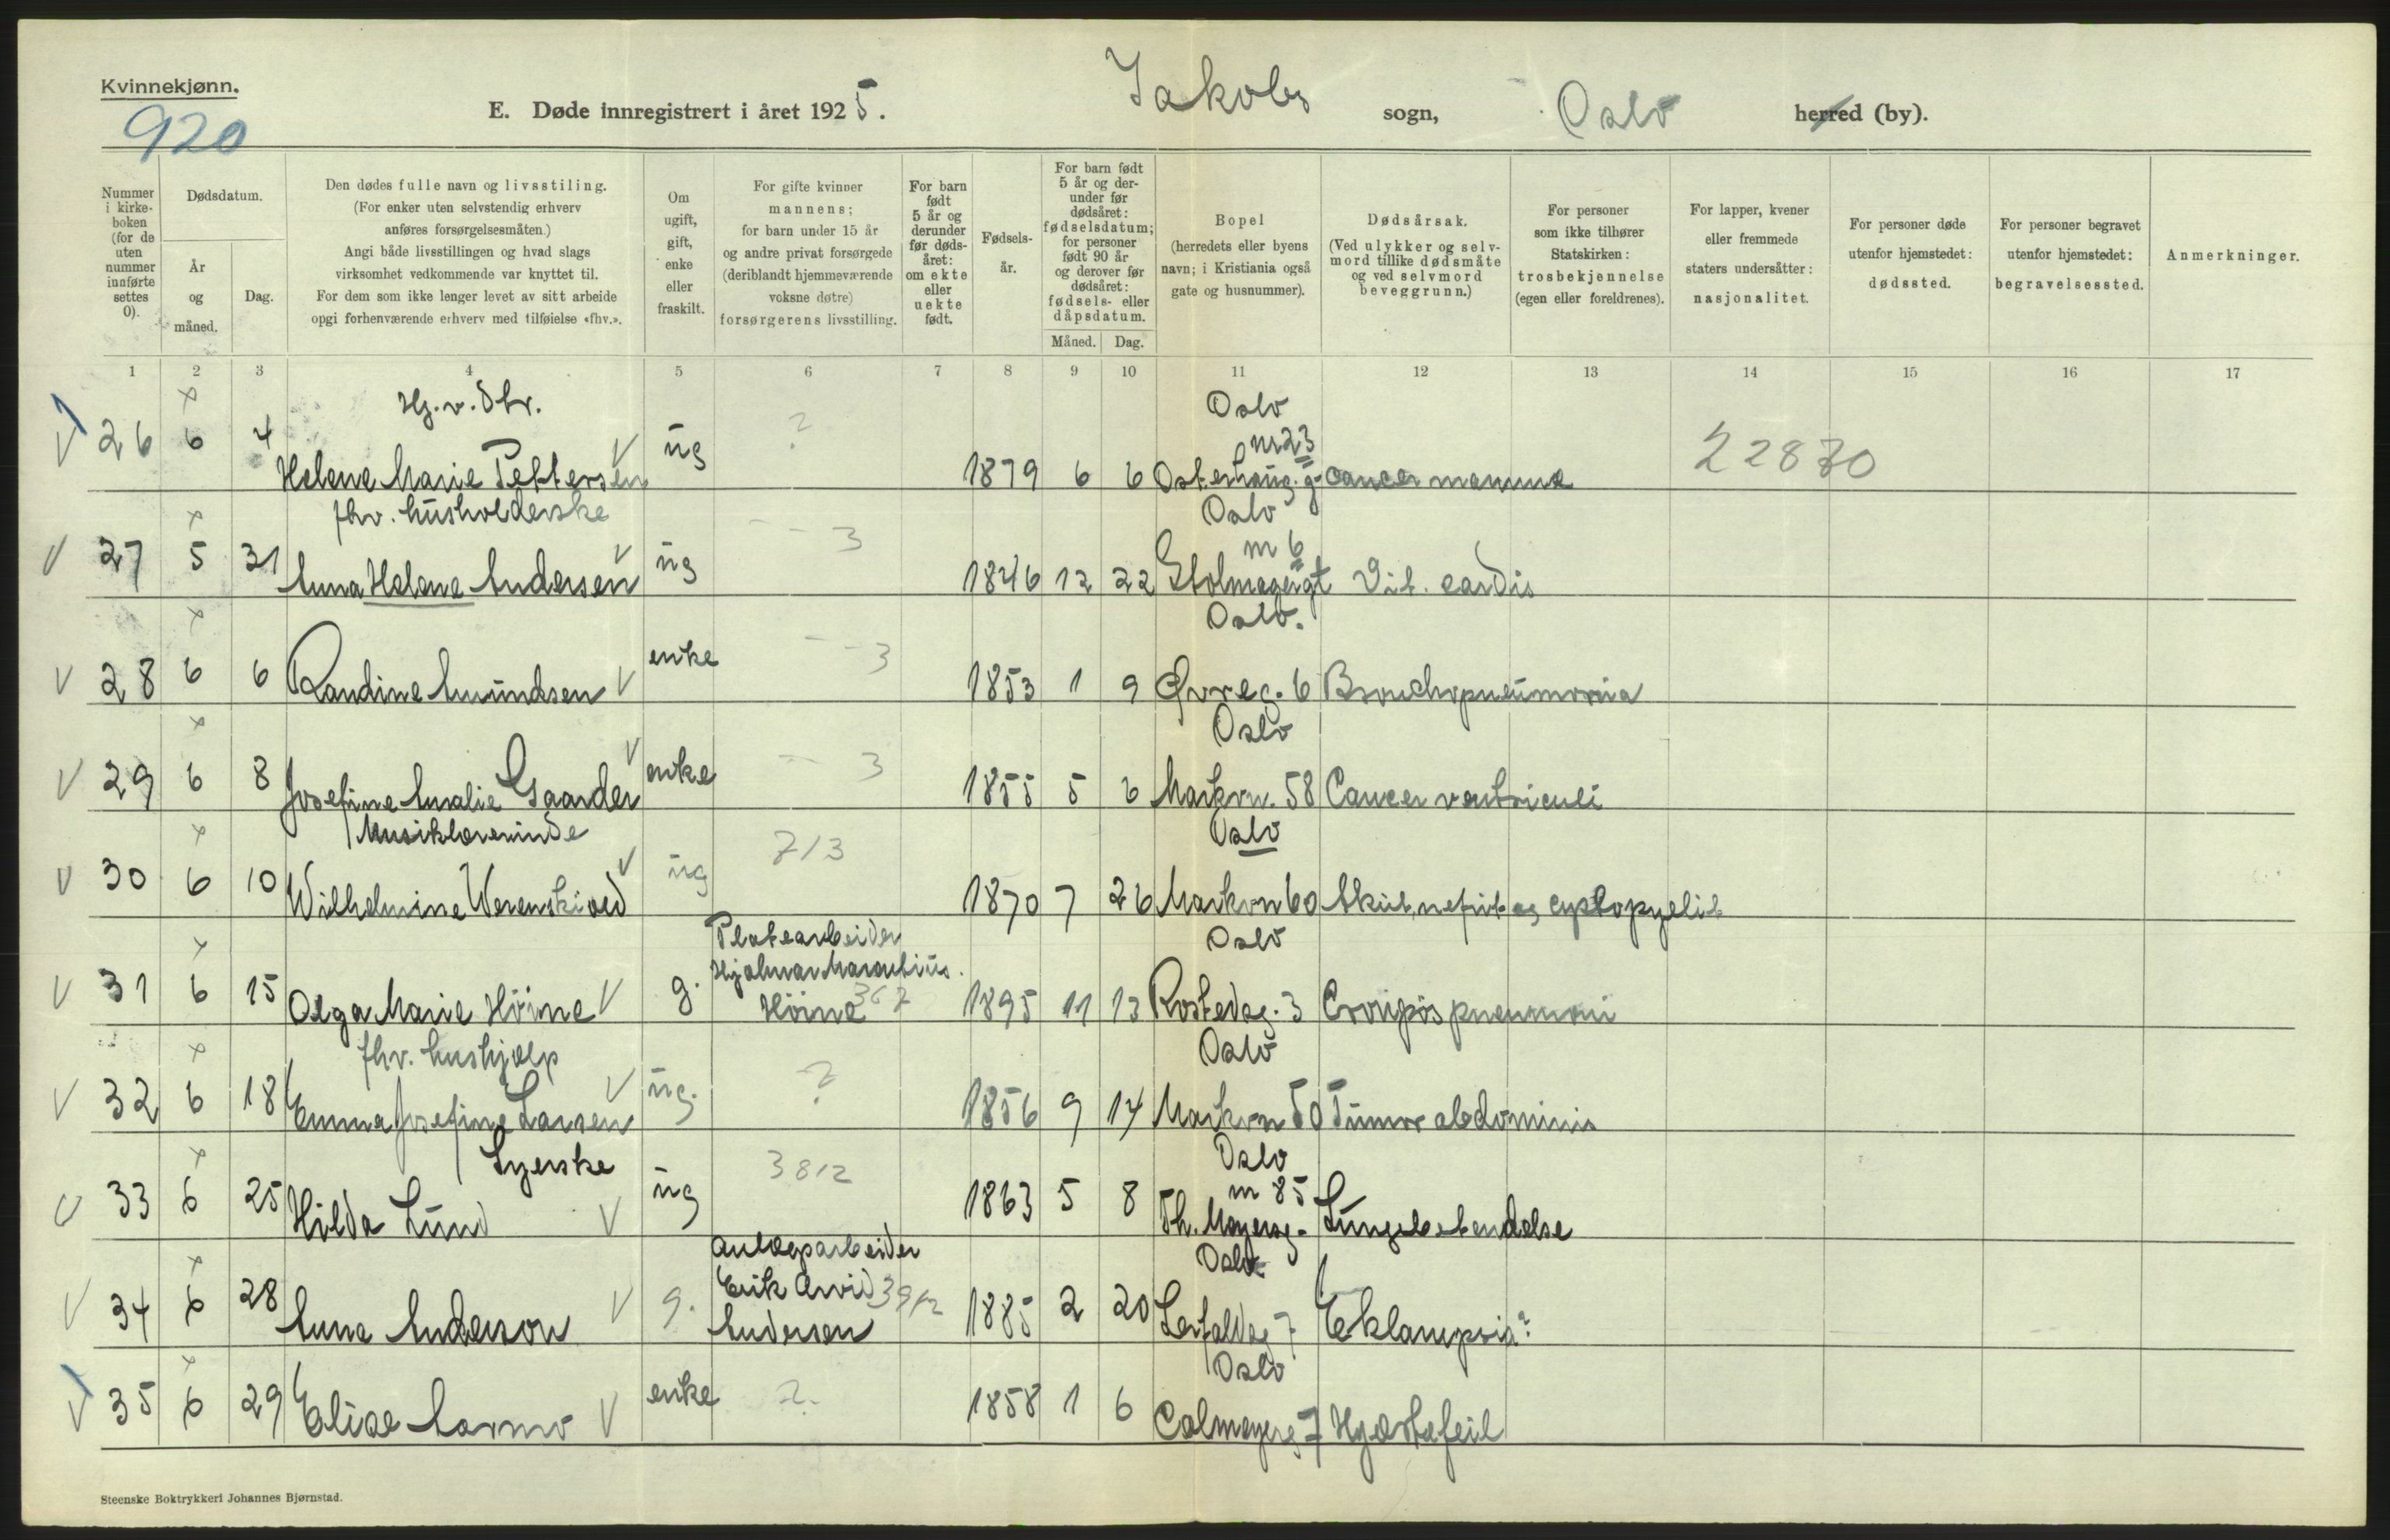 Kvinnekjønn.
920
E. Døde innregistrert i året 1925.
Jakobs sogn, Oslo herred (by).
Nummer i kirkeboken (for de uten nummer innførte settes 0).
Dødsdatum.
År og måned.
Dag.
Den dødes fulle navn og livsstiling.
(For enker uten selvstendig erhverv
anføres forsørgelsesmåten.)
Angi både livsstillingen og hvad slags
virksomhet vedkommende var knyttet til.
For dem som ikke lenger levet av sitt arbeide
opgi forhenværende erhverv med tilføielse «fhv.».
Om ugift, gift, enke eller fraskilt.
For gifte kvinner
mannens;
for barn under 15 år
og andre privat forsørgede
(deriblandt hjemmeværende
voksne døtre)
forsørgerens livsstilling.
For barn født 5 år og derunder før dødsåret: om ekte eller uekte født.
Fødselsår.
For barn født 5 år og derunder før dødsåret: fødselsdatum; for personer født 90 år og derover før dødsåret: fødsels- eller dåpsdatum.
Måned. Dag.
Bopel
(herredets eller byens
navn; i Kristiania også
gate og husnummer).
Dødsårsak.
(Ved ulykker og selvmord tillike dødsmåte og ved selvmord beveggrunn.)
For personer
som ikke tilhører
Statskirken:
trosbekjennelse
(egen eller foreldrenes).
For lapper, kvener
eller fremmede
staters undersåtter:
nasjonalitet.
For personer døde
utenfor hjemstedet:
dødssted.
For personer begravet
utenfor hjemstedet:
begravelsessted.
Anmerkninger.
1 2 3 4 5 6 7 8 9 10 11 12 13 14 15 16 17
Hj. v. dtr. Oslo
26 6 4 Helene Marie Pettersen ug ? 1879 6 6 Osterhausg. nr 23 cancer mammae 22870
fhv. husholderske Oslo
27 5 31 Anna Helene Andersen ug 3 1846 12 22 Stolmagergt nr 6 Vit. cordis
Oslo.
28 6 6 Randine Amundsen enke 3 1853 1 9 Øvreg. 6 Bronchopneumonia
Oslo
29 6 8 Josefine Amalie Gaarder enke 3 1855 5 6 Markvn. 58 Cancer ventriculi
Musiklærerinde Oslo
30 6 10 Wilhelmine Werenskiold ug 713 1870 7 26 Markvn 60 Akut nefrit og cystopyelit
Platearbeider Oslo
Hjalmar Marentius
31 6 15 Olga Marie Höine g. Höine 1895 11 13 Rostedsg. 3 Croupøs pneumoni
fhv. hushjælp Oslo
32 6 18 Emma Josefine Larsen ug. ? 1856 9 14 Markvn 50 Tumor abdominis
Syerske Oslo
33 6 25 Hilda Lund ug 3812 1863 5 8 Th. Meyersg. nr 85 Lungebetendelse
anlægsarbeider Oslo
Erik Arvid 3912
34 6 28 Anna Anderson g. Andersen 1885 2 20 Lerfaldsg 7 Eklampsia?
Oslo
35 6 29 Elise Aarmo enke ? 1858 1 6 Calmeyersg 7 Hjertefeil
Steenske Boktrykkeri Johannes Bjørnstad.